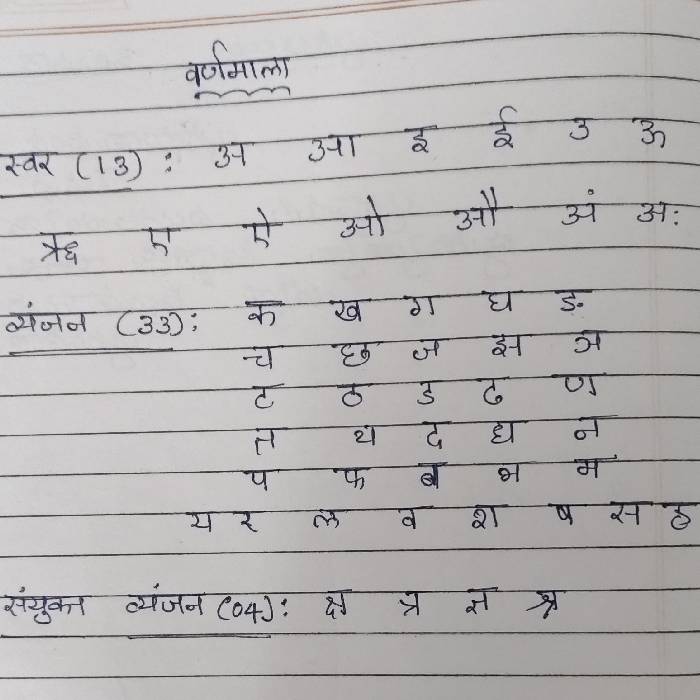 वर्णमाला
स्वर (13) : अ आ इ ई उ ऊ
ऋ ए ऐ ओ औ अं अः
व्यंजन (33) : क ख ग घ ङ
च छ ज झ ञ
ट ठ ड ढ ण
त थ द ध न
प फ ब भ म
य र ल व श ष स ह
संयुक्त व्यंजन (04) : क्ष त्र ज्ञ श्र